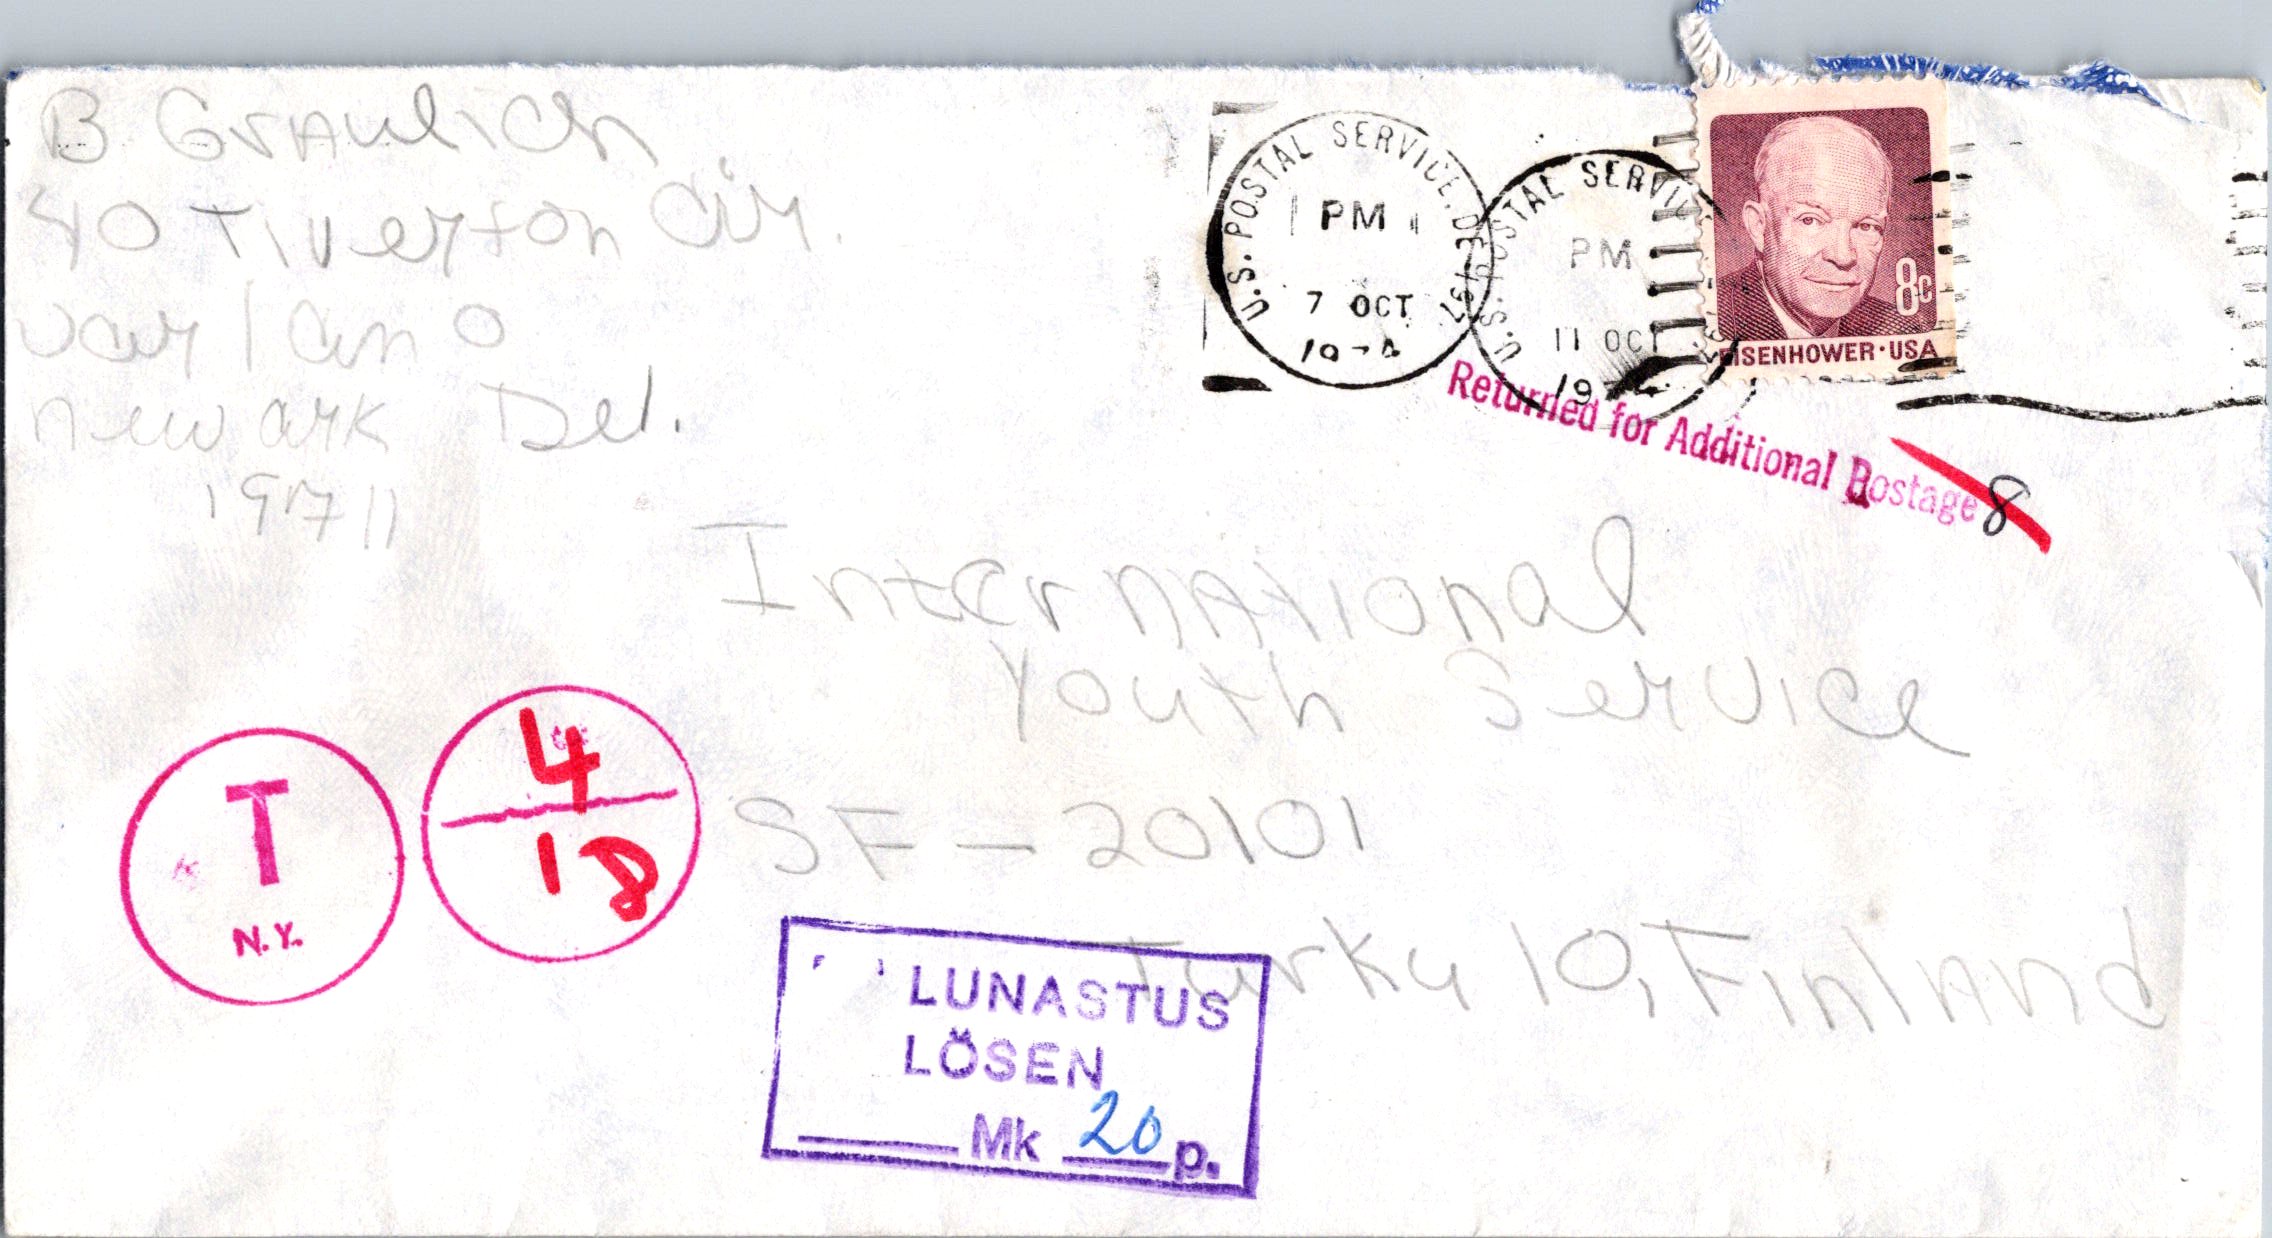 B Graulich
40 Tiverton Cir.
varlano
newark Del.
19711
U.S. POSTAL SERVICE, DE 197
PM
7 OCT
1974
U.S. POSTAL SERVI
PM
11 OCT
19
8c
EISENHOWER·USA
Returned for Additional Postage 8
International
Youth Service
SF - 20101
Turku 10, Finland
T
N.Y.
4
18
LUNASTUS
LÖSEN
Mk 20 p.